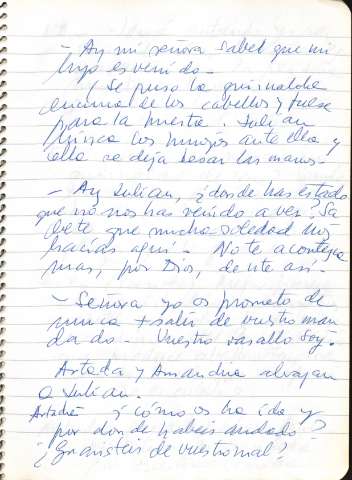 - Ay mi señora sabet que mi
hijo es venido -
(Se puso la guirnalda
encima de los cabellos y fuese
para la puerta. Julian
hinca los hinojos ante ella y
ella se deja besar las manos -
- Ay Julian, ¿donde has estado
que no nos has venido a ver? Sa
bete que mucha soledad nos
hacias aqui - No te acontezca
mas, por Dios, de ute asi -
- Señora yo os prometo de
nunca + salir de vuestro man
dado - Vuestro vasallo soy.
Artada y Amandria abrazan
a Julian.
¿cómo os ha ido y
por donde habeis andado?
¿Guaristeis de vuestro mal?